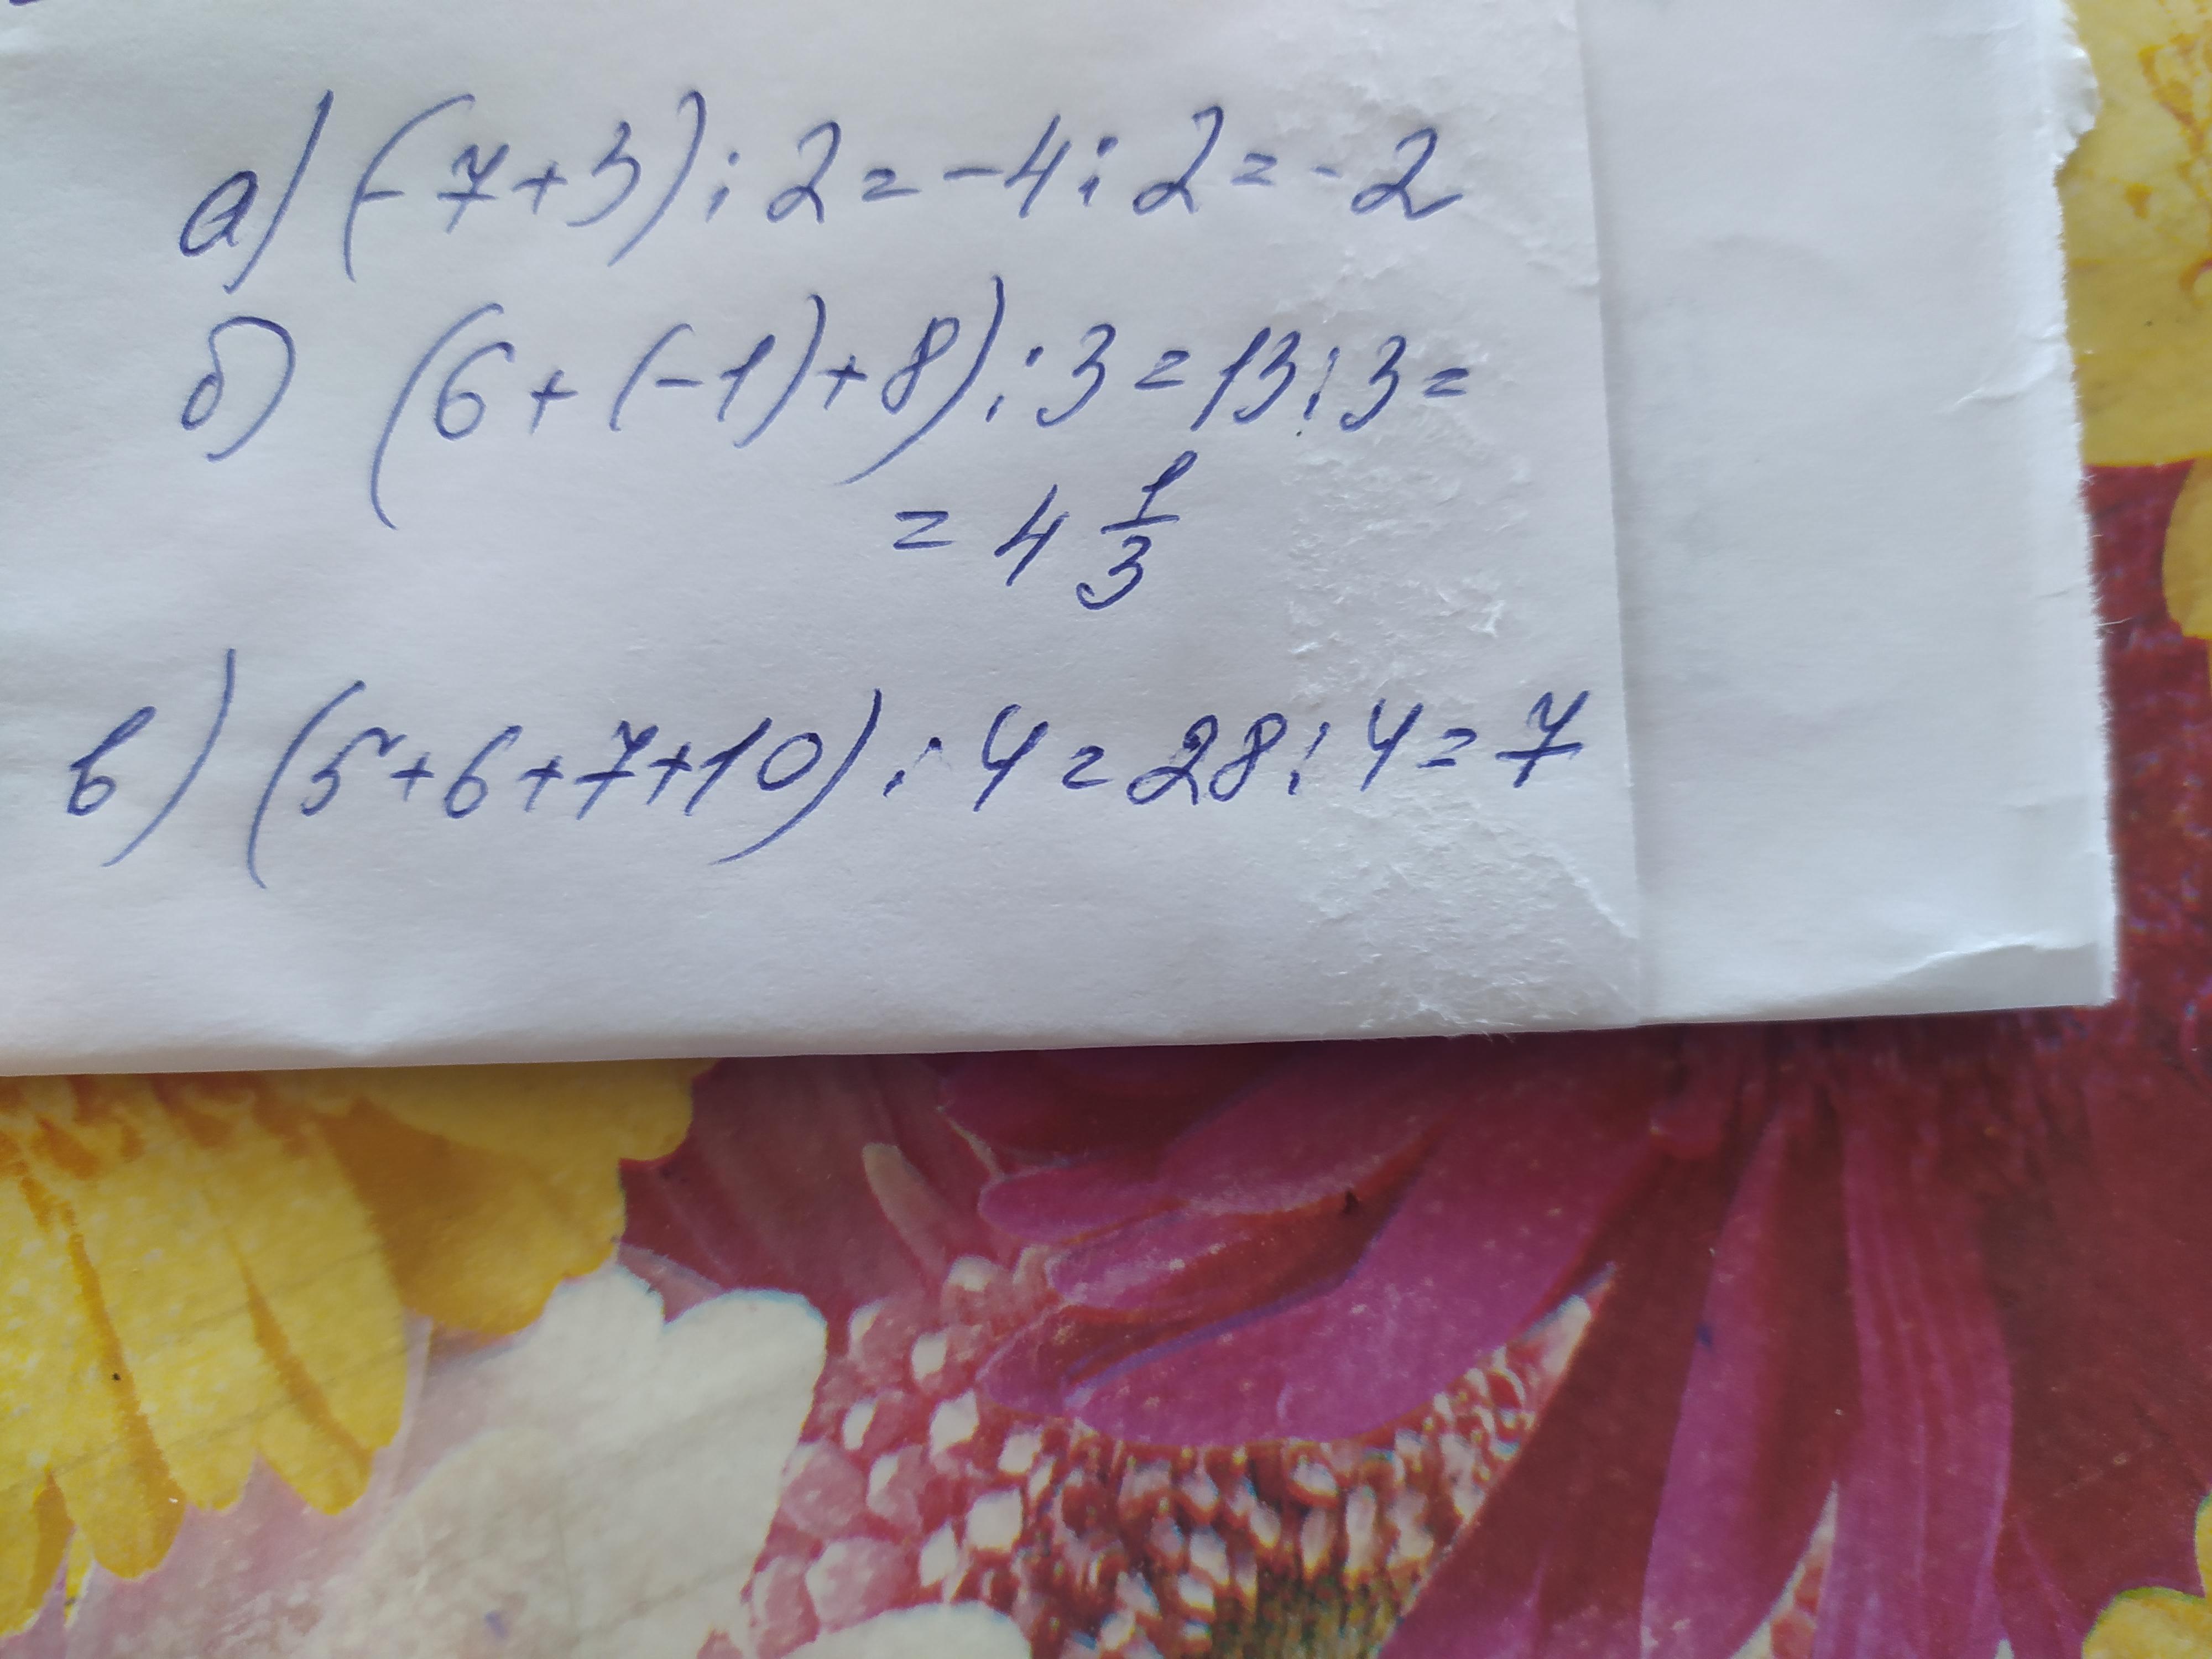 а) (-7+3):2=-4:2=-2
б) (6+(-1)+8):3=13:3=
=4 1/3
в) (5+6+7+10):4=28:4=7